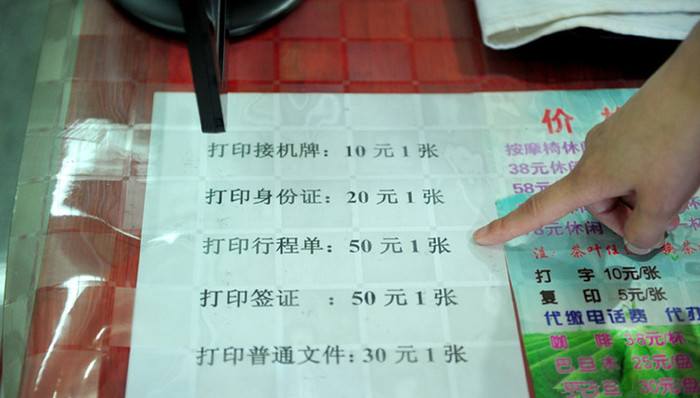 打印接机牌：10元1张
打印身份证：20元1张
打印行程单：50元1张
打印签证　：50元1张
打印普通文件：30元1张
价
按摩椅休
38元休闲
58元
8元休闲
注：茶叶任
茶
打 字 10元/张
复 印 5元/张
代缴电话费 代办
咖 啡 38元/杯
巴旦木 25元/盘
30元/盘